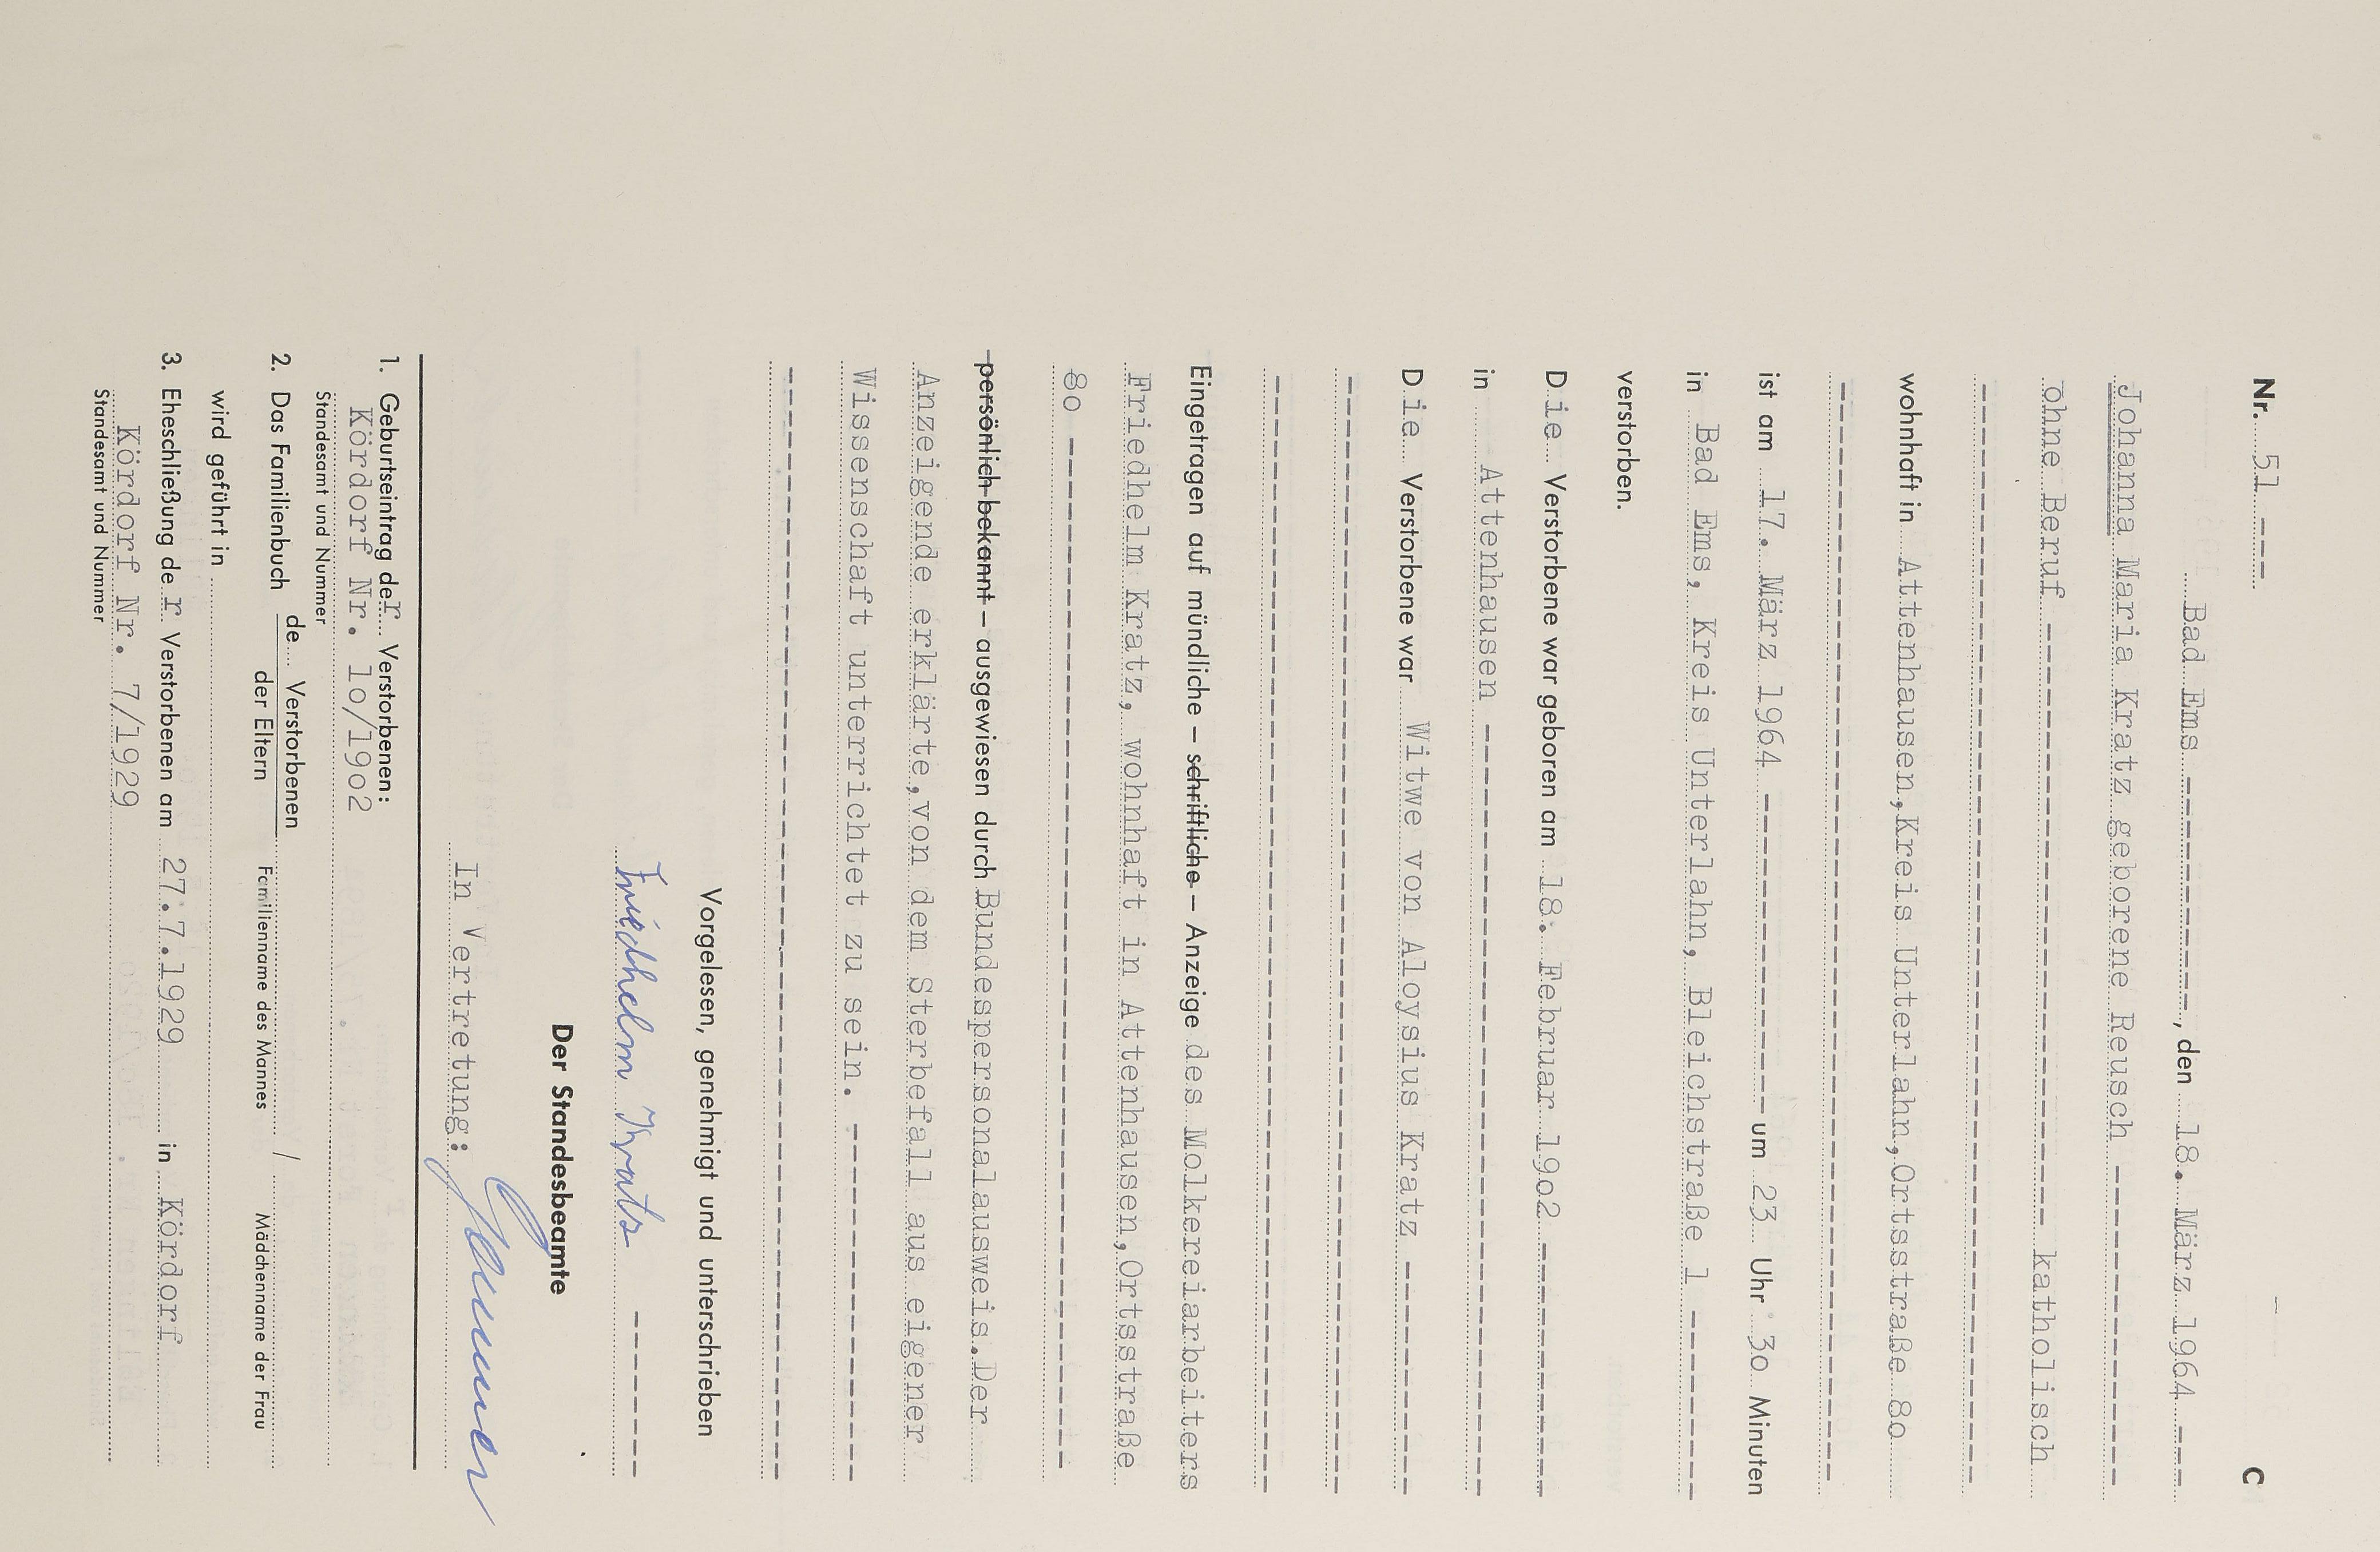 Nr. 51 ---- C
Bad Ems ------------, den 18. März 1964 ---
Johanna Maria Kratz geborene Reusch ---------------
ohne Beruf ----------------------------- katholisch
-------------------------------------------------------
wohnhaft in Attenhausen,Kreis Unterlahn,Ortsstraße 8o
-------------------------------------------------------
ist am 17. März 1964 --------------- um 23 Uhr 3o Minuten
in Bad Ems, Kreis Unterlahn, Bleichstraße 1 ---------
verstorben.
Die Verstorbene war geboren am 18. Februar 19o2 ------------
in Attenhausen -------------------------------------
Die Verstorbene war Witwe von Aloysius Kratz -----------
-------------------------------------------------------
-------------------------------------------------------
Eingetragen auf mündliche – schriftliche – Anzeige des Molkereiarbeiters
Friedhelm Kratz, wohnhaft in Attenhausen,Ortsstraße
8o ---------------------------------------------------
persönlich bekannt – ausgewiesen durch Bundespersonalausweis.Der
Anzeigende erklärte,von dem Sterbefall aus eigener
Wissenschaft unterrichtet zu sein. -----------------
-------------------------------------------------------
Vorgelesen, genehmigt und unterschrieben
Friedhelm Kratz --------
Der Standesbeamte
In Vertretung:
1. Geburtseintrag der Verstorbenen:
Kördorf Nr. 1o/19o2
Standesamt und Nummer
2. Das Familienbuch de Verstorbenen / 
der Eltern Familienname des Mannes Mädchenname der Frau
wird geführt in
3. Eheschließung der Verstorbenen am 27.7.1929 in Kördorf
Kördorf Nr. 7/1929
Standesamt und Nummer